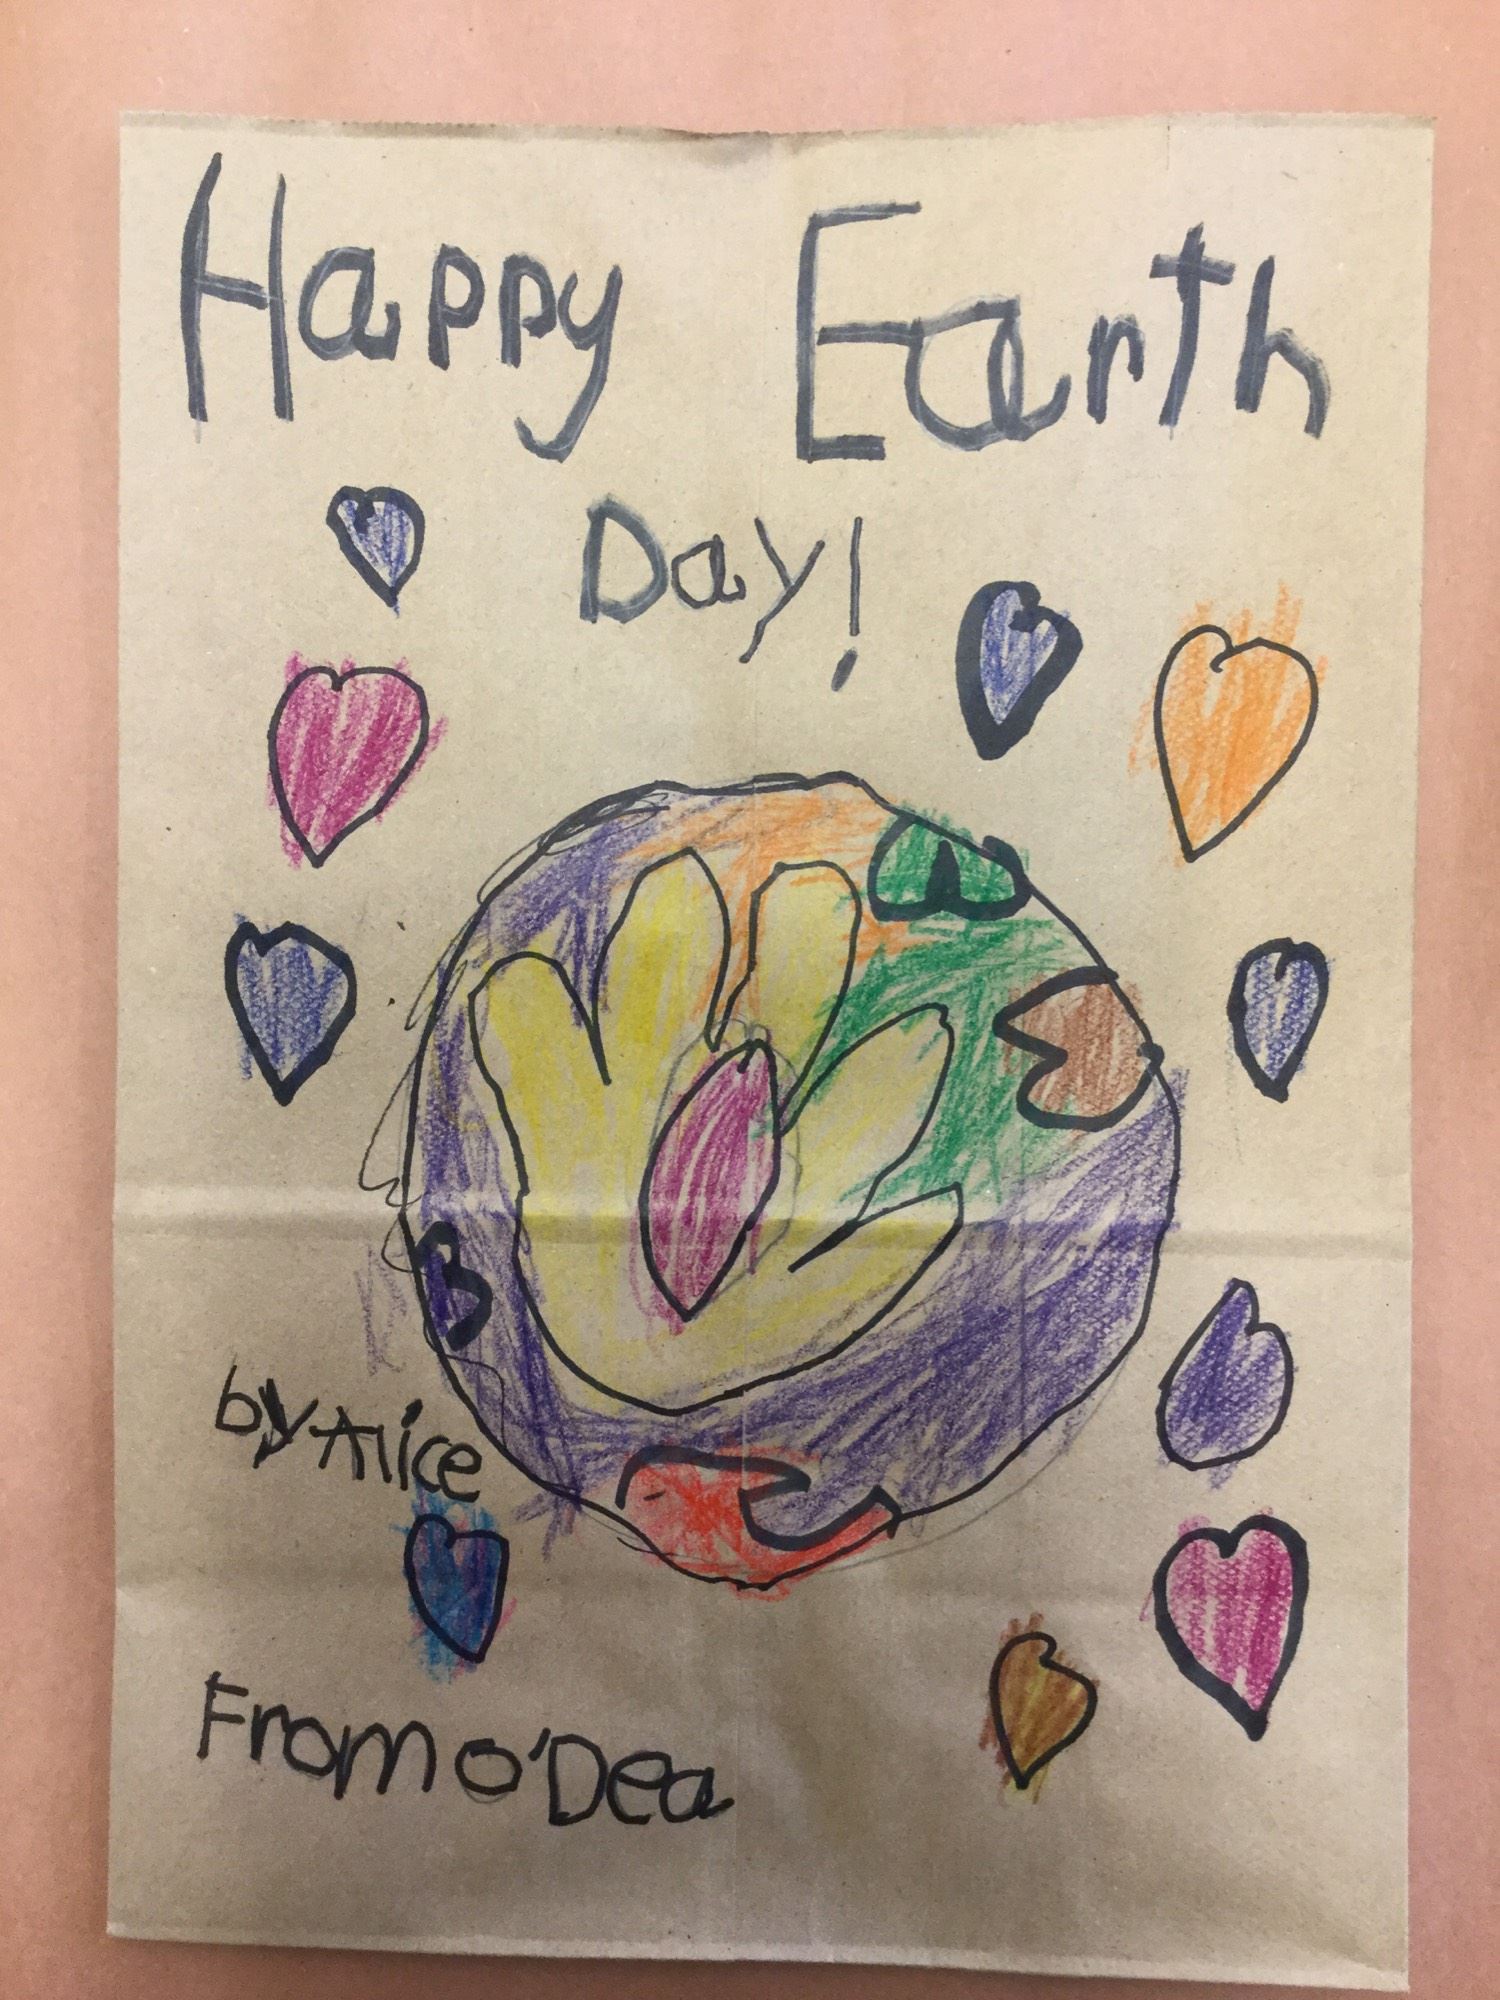 Happy Earth
Day!
by Alice
From o'Dea